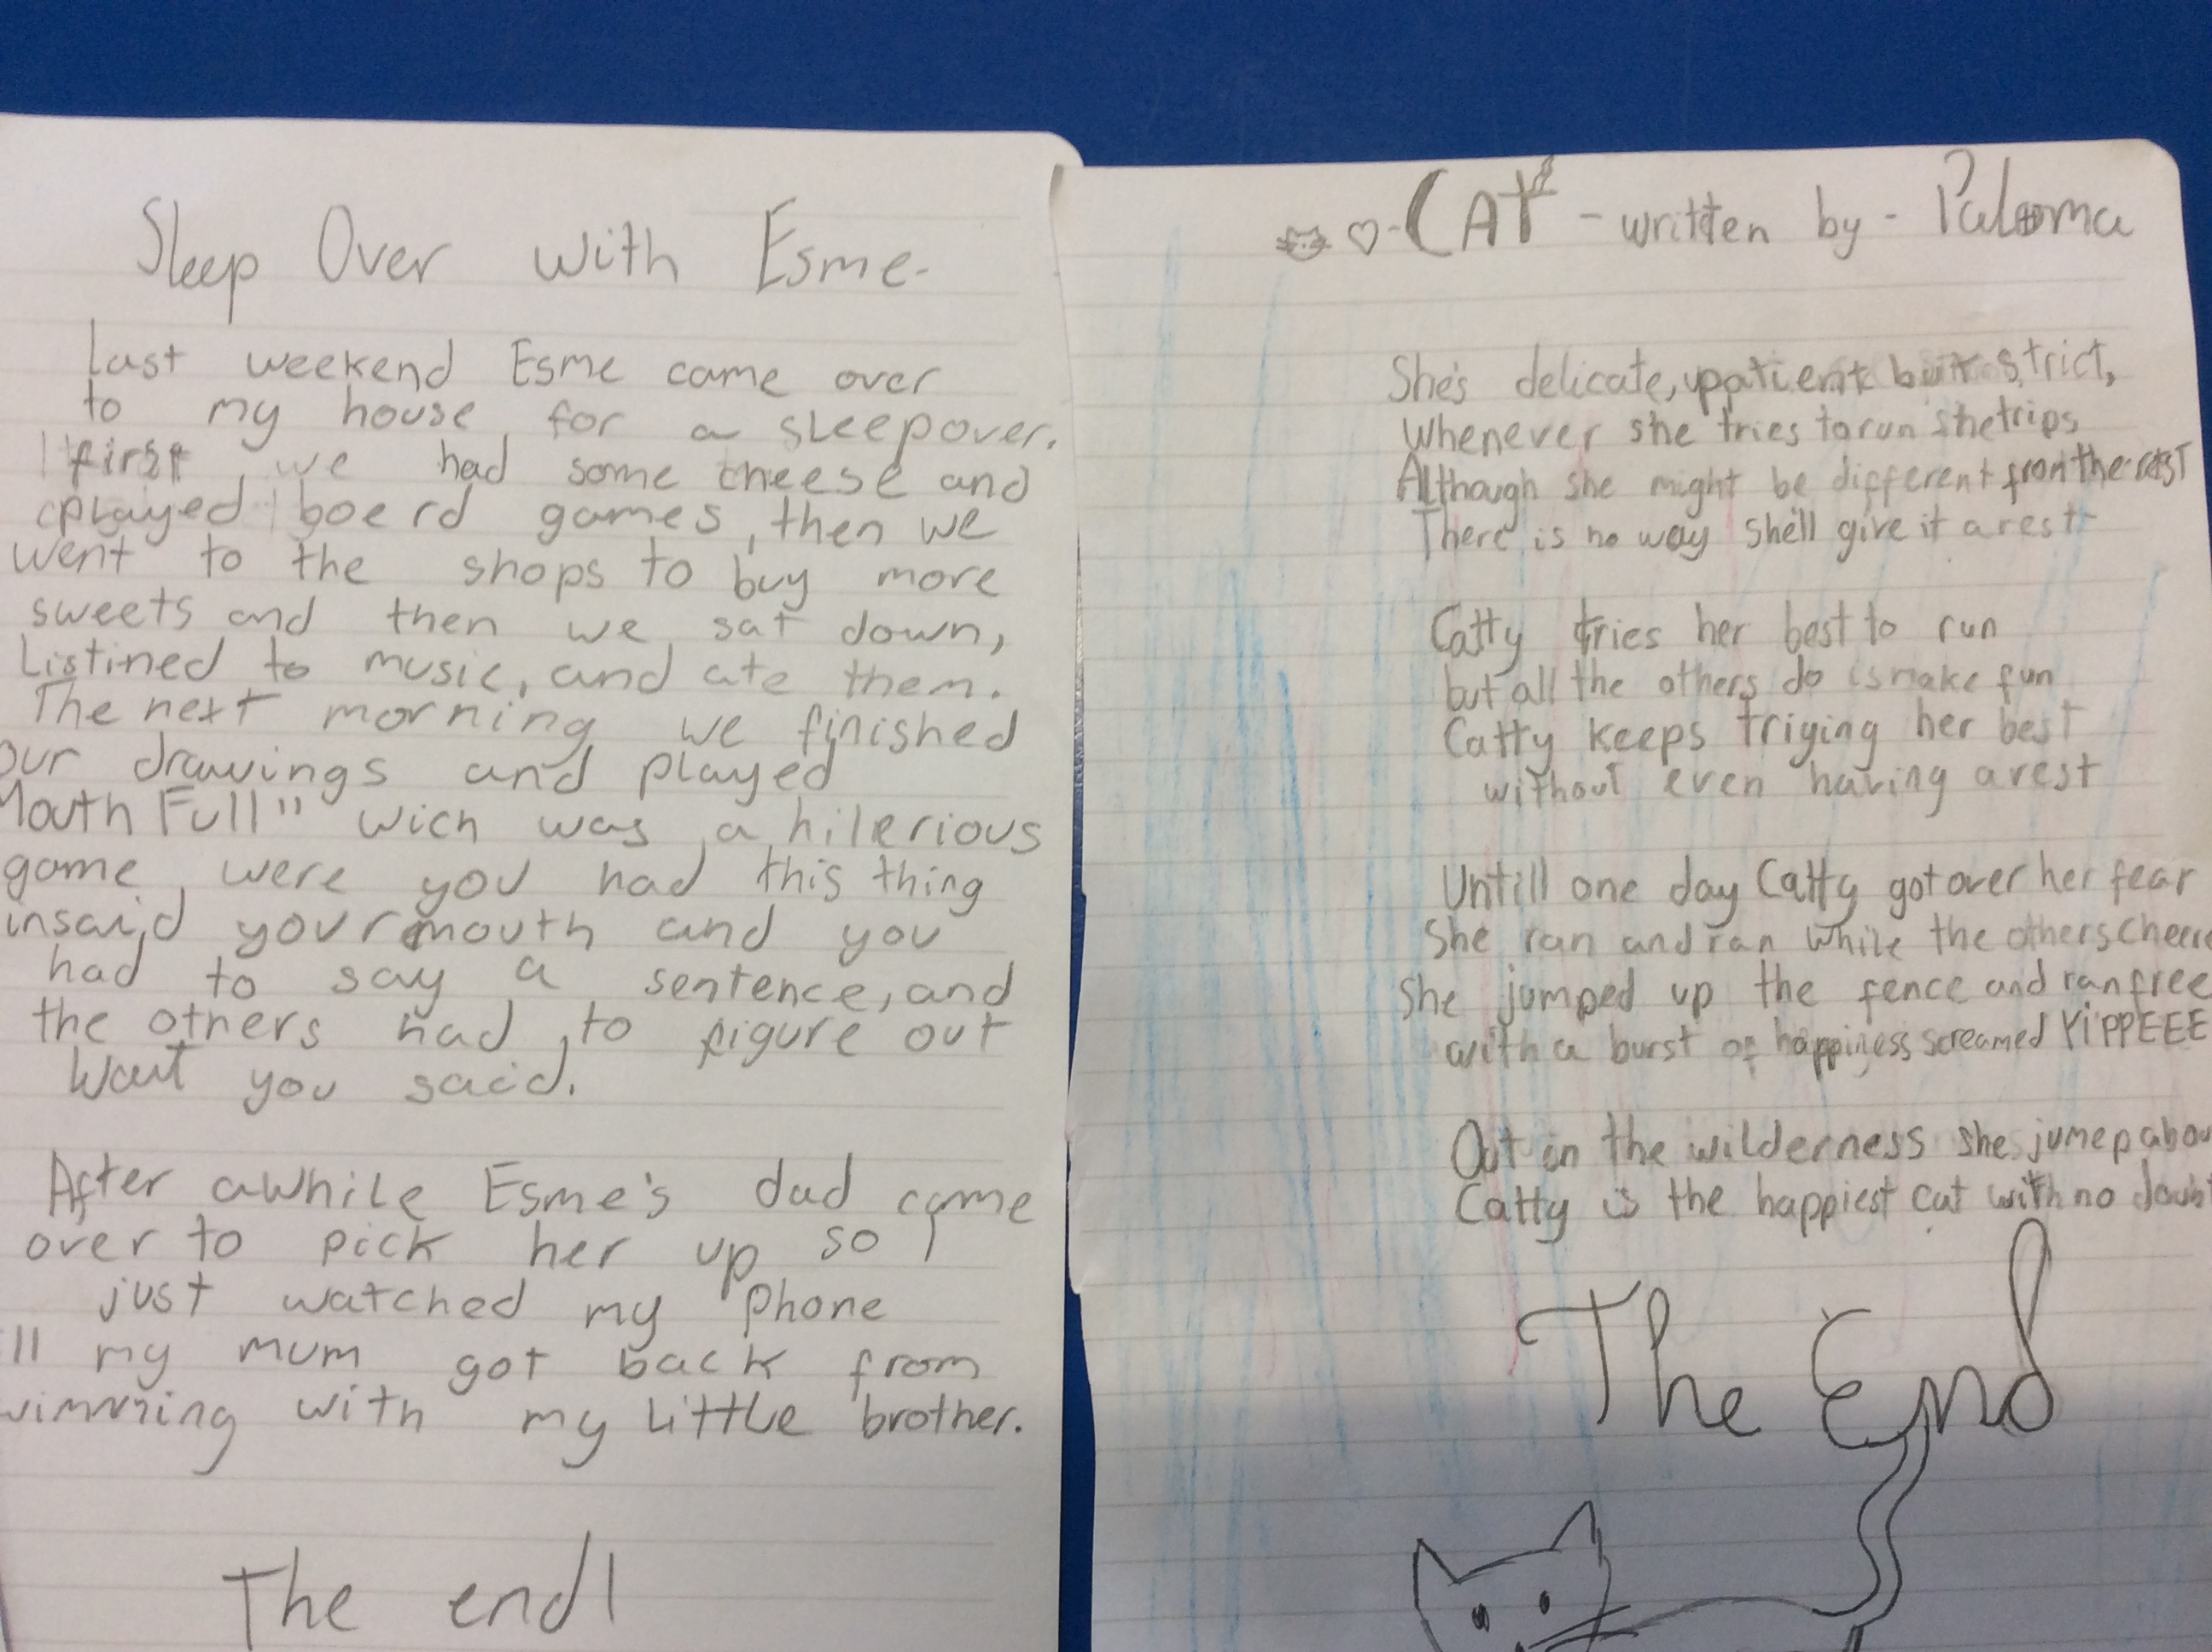 Sleep Over with Esme-
Last weekend Esme came over
to my house for a sleepover.
first we had some cheese and
played boerd games, then we
went to the shops to buy more
sweets and then we sat down,
Listined to music, and ate them.
The next morning we finished
our drawings and played
Mouth Full" wich was a hilerious
game, were you had this thing
insaid your mouth and you
had to say a sentence, and
the others had to figure out
Wat you said.
After awhile Esme's dad came
over to pick her up so I
just watched my phone
ll my mum got back from
wimming with my little brother.
The end!
CAT - written by - Paloma
She's delicate, patient but strict,
Whenever she tries to run she trips
Although she might be different from the rest
There is no way she'll give it a rest
Catty tries her best to run
but all the others do is make fun
Catty keeps triying her best
without even having a rest
Untill one day Catty got over her fear
She ran and ran while the others cheere
She jumped up the fence and ran free
with a burst of happiness screamed YiPPEEE
Out in the wilderness she jumep abou
Catty is the happiest cat with no doubt
The End